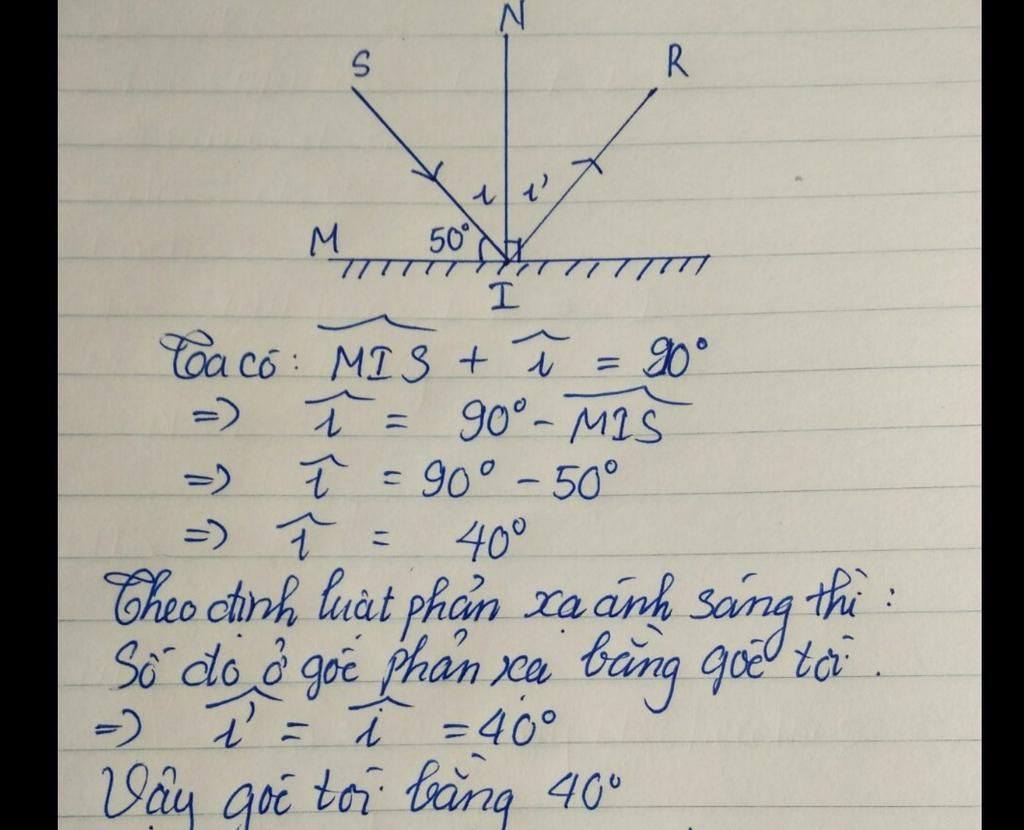 N
S
R
i i'
M 50°
I
Ta có: MIS + i = 90°
=> i = 90° - MIS
=> i = 90° - 50°
=> i = 40°
Theo định luật phản xạ ánh sáng thì:
Số đo ở góc phản xạ bằng góc tới.
=> i' = i = 40°
Vậy góc tới bằng 40°